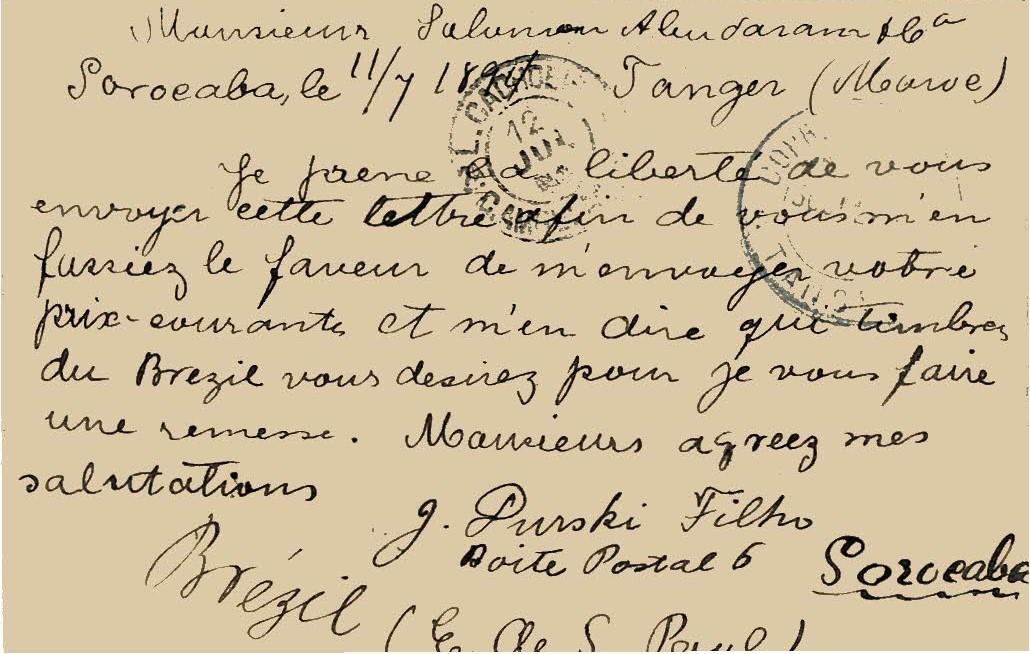 Monsieur Salomon Abudaram
Sorocaba, le 11/7 189 Tanger (Maroc)
Je prene la liberté de vous
envoyer cette lettre afin de vous m'en
fussiez le faveur de m'envoyer votre
prix-courante et m'en dire que timbres
du Brezil vous desirez pour je vous faire
une remesse. Monsieurs agreez mes
salutations
J. Purski Filho
Boite Postal 6 Sorocaba
Brézil (E. de S. Paul)
12
JUL